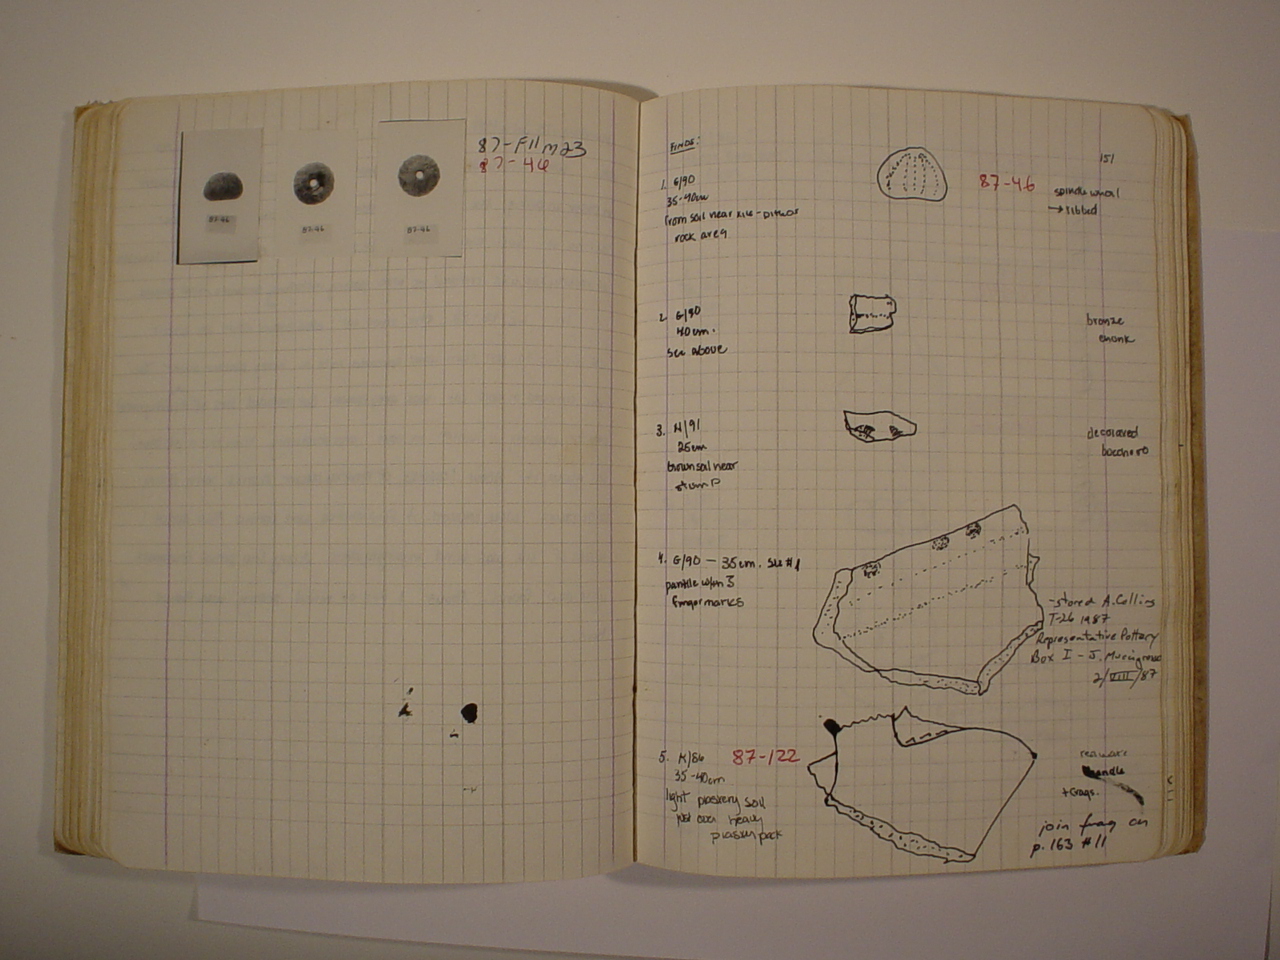 87-Film 23
87-46
87-46
87-46
87-46
151
FINDS:
1. G/90
35-40cm
from soil near
rock area
87-46
spindle whorl
→ ribbed
2. G/90
40cm.
see above
bronze
chunk
3. N/91
25cm
brown soil near
stump
decorated
bucchero
4. G/90 — 35cm. See #1
pantile w/ 3
finger marks
-stored A. Collins
T-26 1987
Representative Pottery
Box I - J.
2/VIII/87
5. 87-122
35-40cm
light plastery soil
just over heavy
plaster pack
handle
+ frags.
join frag on
p. 163 #11